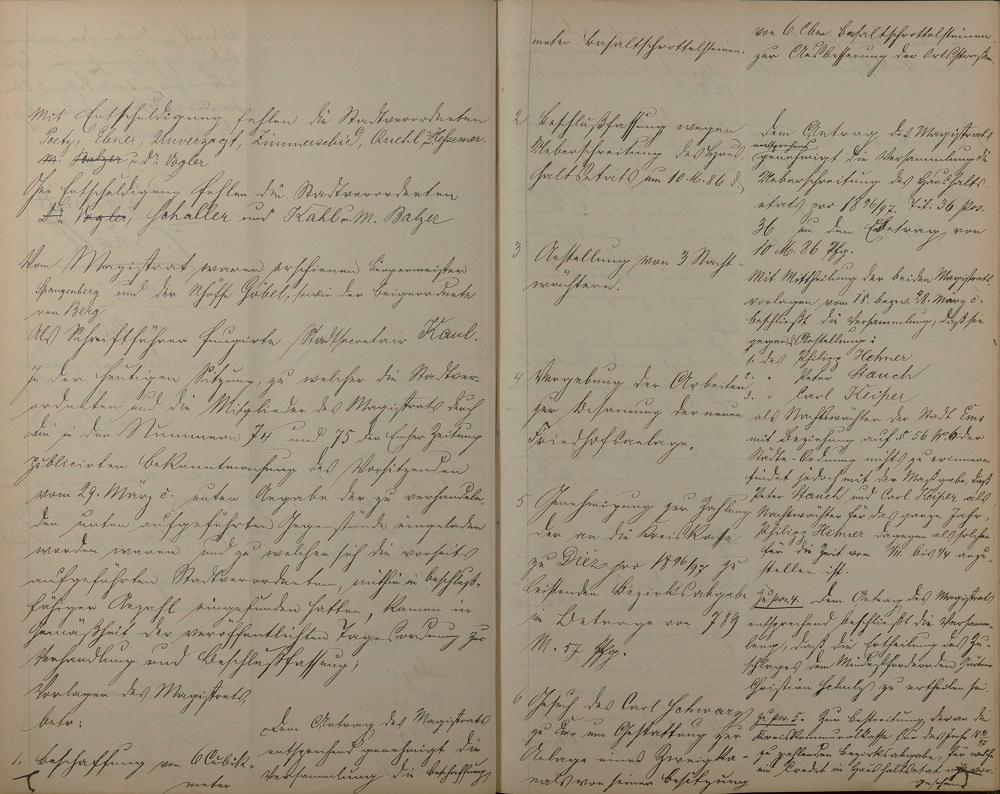 Mit Entschuldigung fehlen die Stadtverordneten
Poety, Ebner, Unverzagt, Zimmerschied, Quehl, Hessemer
M. Balzer u. Dr. Vogler
Ohne Entschuldigung fehlen die Stadtverordneten
Dr. Vogler, Schaller und Kahl u. M. Balzer
Vom Magistrat waren erschienen Bürgermeister
Spangenberg und der Schöffe Göbel, sowie der Beigeordnete
von Berg.
Als Schriftführer fungirte Stadtsecretair Kaul.
In der heutigen Sitzung, zu welcher die Stadtver-
ordneten und die Mitglieder des Magistrats durch
die in den Nummern 74 und 75 der Emser Zeitung
publicirten Bekanntmachung des Vorsitzenden
vom 29. März c. unter Angabe der zu verhandeln-
den unten aufgeführten Gegenstände eingeladen
worden waren und zu welcher sich die vorseits
aufgeführten Stadtverordneten, mithin in beschluß-
fähiger Anzahl eingefunden hatten, kamen in
Gemäßheit der veröffentlichten Tagesordnung zur
Verhandlung und Beschlußfassung;
Vorlagen des Magistrats,
betr:
1. Beschaffung von 6 Cubik-
meter
Dem Antrag des Magistrats
entsprechend genehmigt die
Versammlung die Beschaffung
meter Basaltschrottelsteinen.
von 6 Cbm Basaltschrottelsteinen
zur Ausbesserung der Ortsstraßen.
2 Beschlußfassung wegen
Ueberschreitung des Haus-
haltsetats um 10 M. 86 d.
Dem Antrag des Magistrats
entsprechend
genehmigt die Versammlung die
Ueberschreitung des Haushalts-
etats pro 1896/97. Tit. 36 Pos.
36 um den Betrag von
10 M. 86 Pfg.
3 Anstellung von 3 Nacht-
wächtern.
Mit Mittheilung der beiden Magistrats-
vorlagen vom 18. bezw. 28. März c.
beschließt die Versammlung, daß sie
gegen die Anstellung:
1. des Philipp Hehner
2. " Peter Stauch
3. " Carl Keiper
als Nachtwächter der Stadt Ems
mit Beziehung auf § 56 No 6 der
Städte-Ordnung nichts zu erinnern
findet jedoch mit der Maßgabe, daß
Peter Stauch und Carl Keiper als
Nachtwächter für das ganze Jahr,
Philipp Hehner dagegen als solcher
für die Zeit vom bis 1/4 anzu-
stellen ist.
4 Vergebung der Arbeiten
zur Besamung der neuen
Friedhofsanlage.
Zu pos. 4. Dem Antrag des Magistrats
entsprechend beschließt die Versamm-
lung, daß die Ertheilung des Zu-
schlages dem Mindestfordernden Gärtner
Christian Schulz zu ertheilen sei.
5 Genehmigung zur Zahlung
der an die Kreiskasse
zu Diez pro 1896/97 zu
leistenden Bezirksabgabe
im Betrage von 789
M. 57 Pfg.
Zu pos. 5. Zur Bestreitung der an die
Kreiskommunalkasse für das Jahr 1896/97
zu zahlenden Bezirksabgabe, für welche
ein Credit im Haushaltsetat nicht vor-
gesehen
6 Gesuch des Carl Schwarz
zu Ems um Gestattung zur
Anlage eines Zweigka-
nals von seiner Besitzung